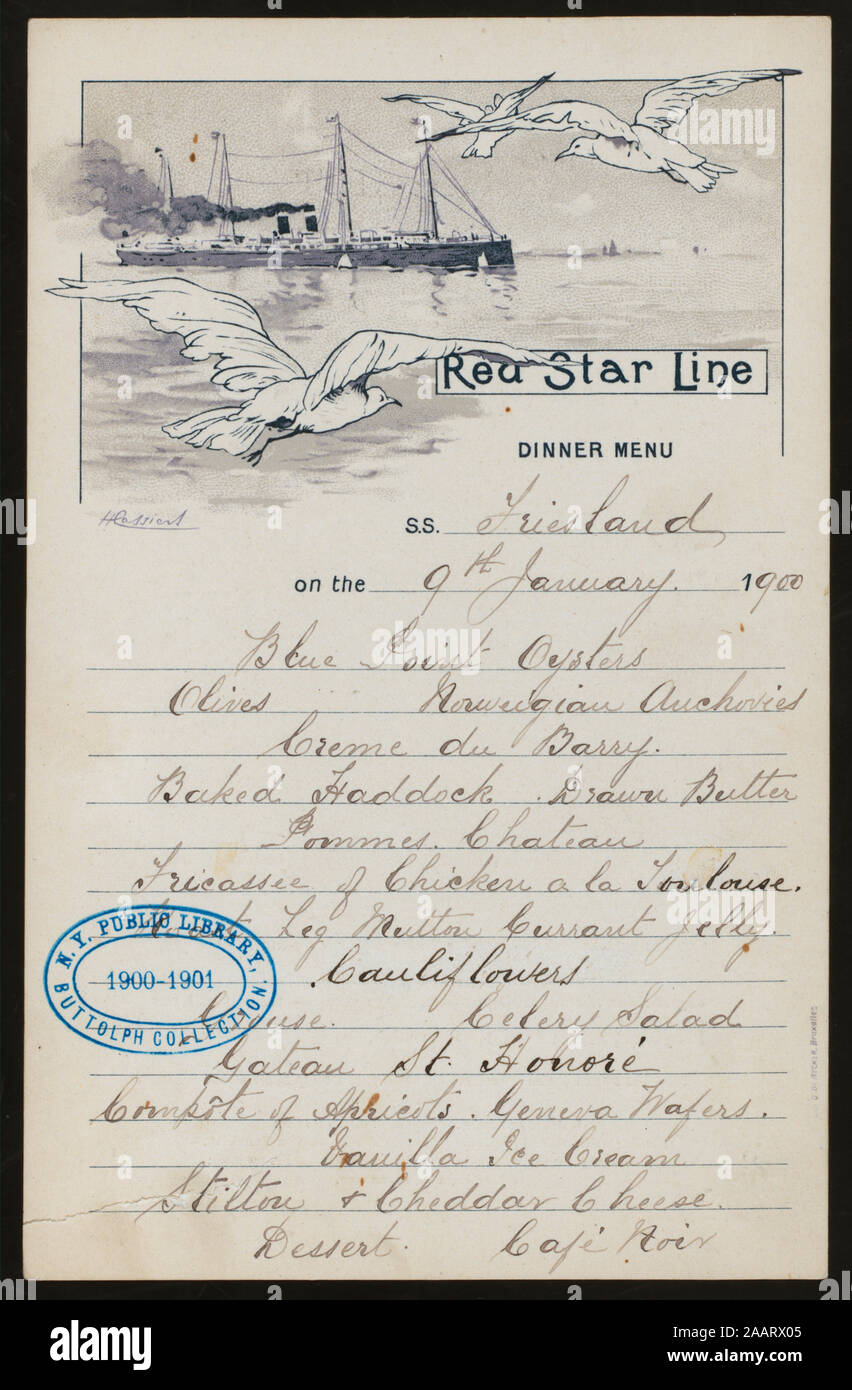 Red Star Line
DINNER MENU
HCassiers
S.S. Friesland
on the 9th January. 1900
Blue Point Oysters
Olives Norweigian Anchovies
Creme du Barry.
Baked Haddock. Drawn Butter
Pommes. Chateau
Fricassee of Chicken a la Toulouse.
Roast Leg Mutton Currant Jelly.
Cauliflowers
Grouse. Celery Salad
Gateau St. Honoré
Compôte of Apricots. Geneva Wafers.
Vanilla Ice Cream
Stilton & Cheddar Cheese.
Dessert. Café Noir
N.Y. PUBLIC LIBRARY,
1900-1901
BUTTOLPH COLLECTION.
Bruxelles
alamy
a
alamy
Image ID: 2AARX05
www.alamy.com